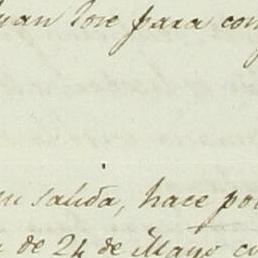 Juan Jose para con
su salida, hace po
de 24 de Mayo